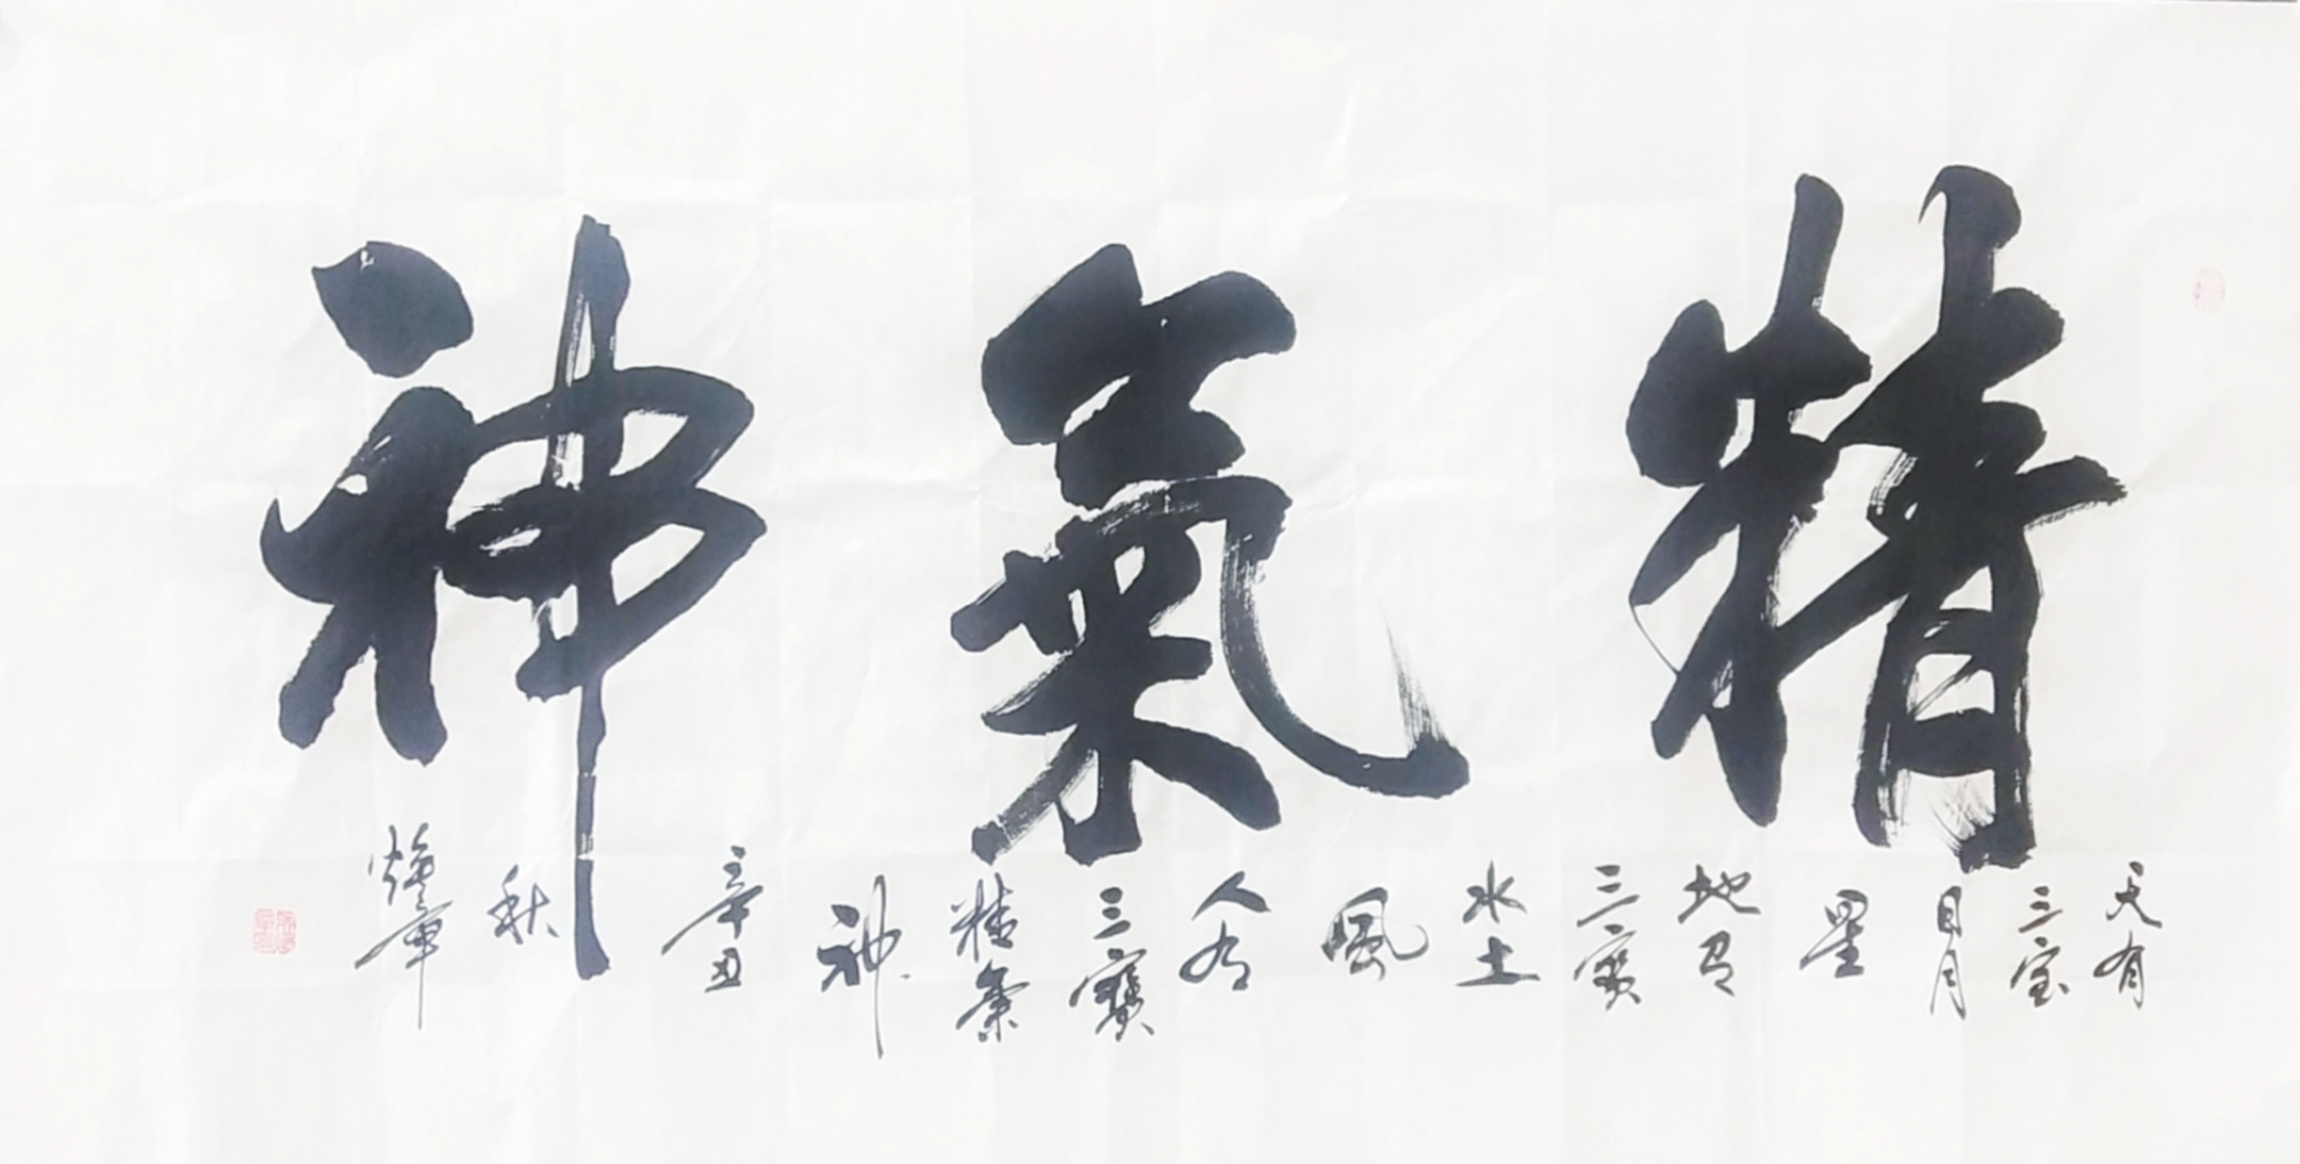 精氣神
天有
三宝
日月
星
地有
三寳
水土
風
人有
三寶
精氣
神
辛丑
秋